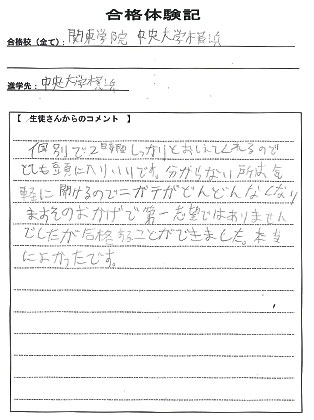 合格体験記
合格校(全て): 関東学院 中央大学横浜
進学先: 中央大学横浜
【 生徒さんからのコメント 】
個別で2時間しっかりとおしえてくれるので
とても頭に入りいいです。分からない所は気
軽に聞けるのでニガテがどんどんなくなり
ますそのおかげで第一志望ではありません
でしたが合格することができました。本当
によかったです。